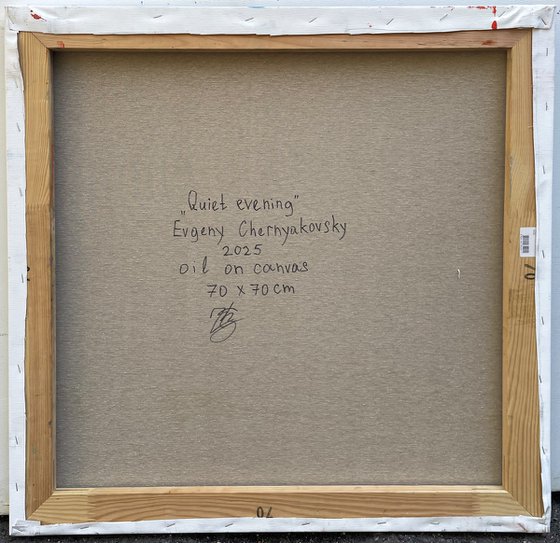 „Quiet evening"
Evgeny Chernyakovsky
2025
oil on canvas
70 x 70 cm
70
70